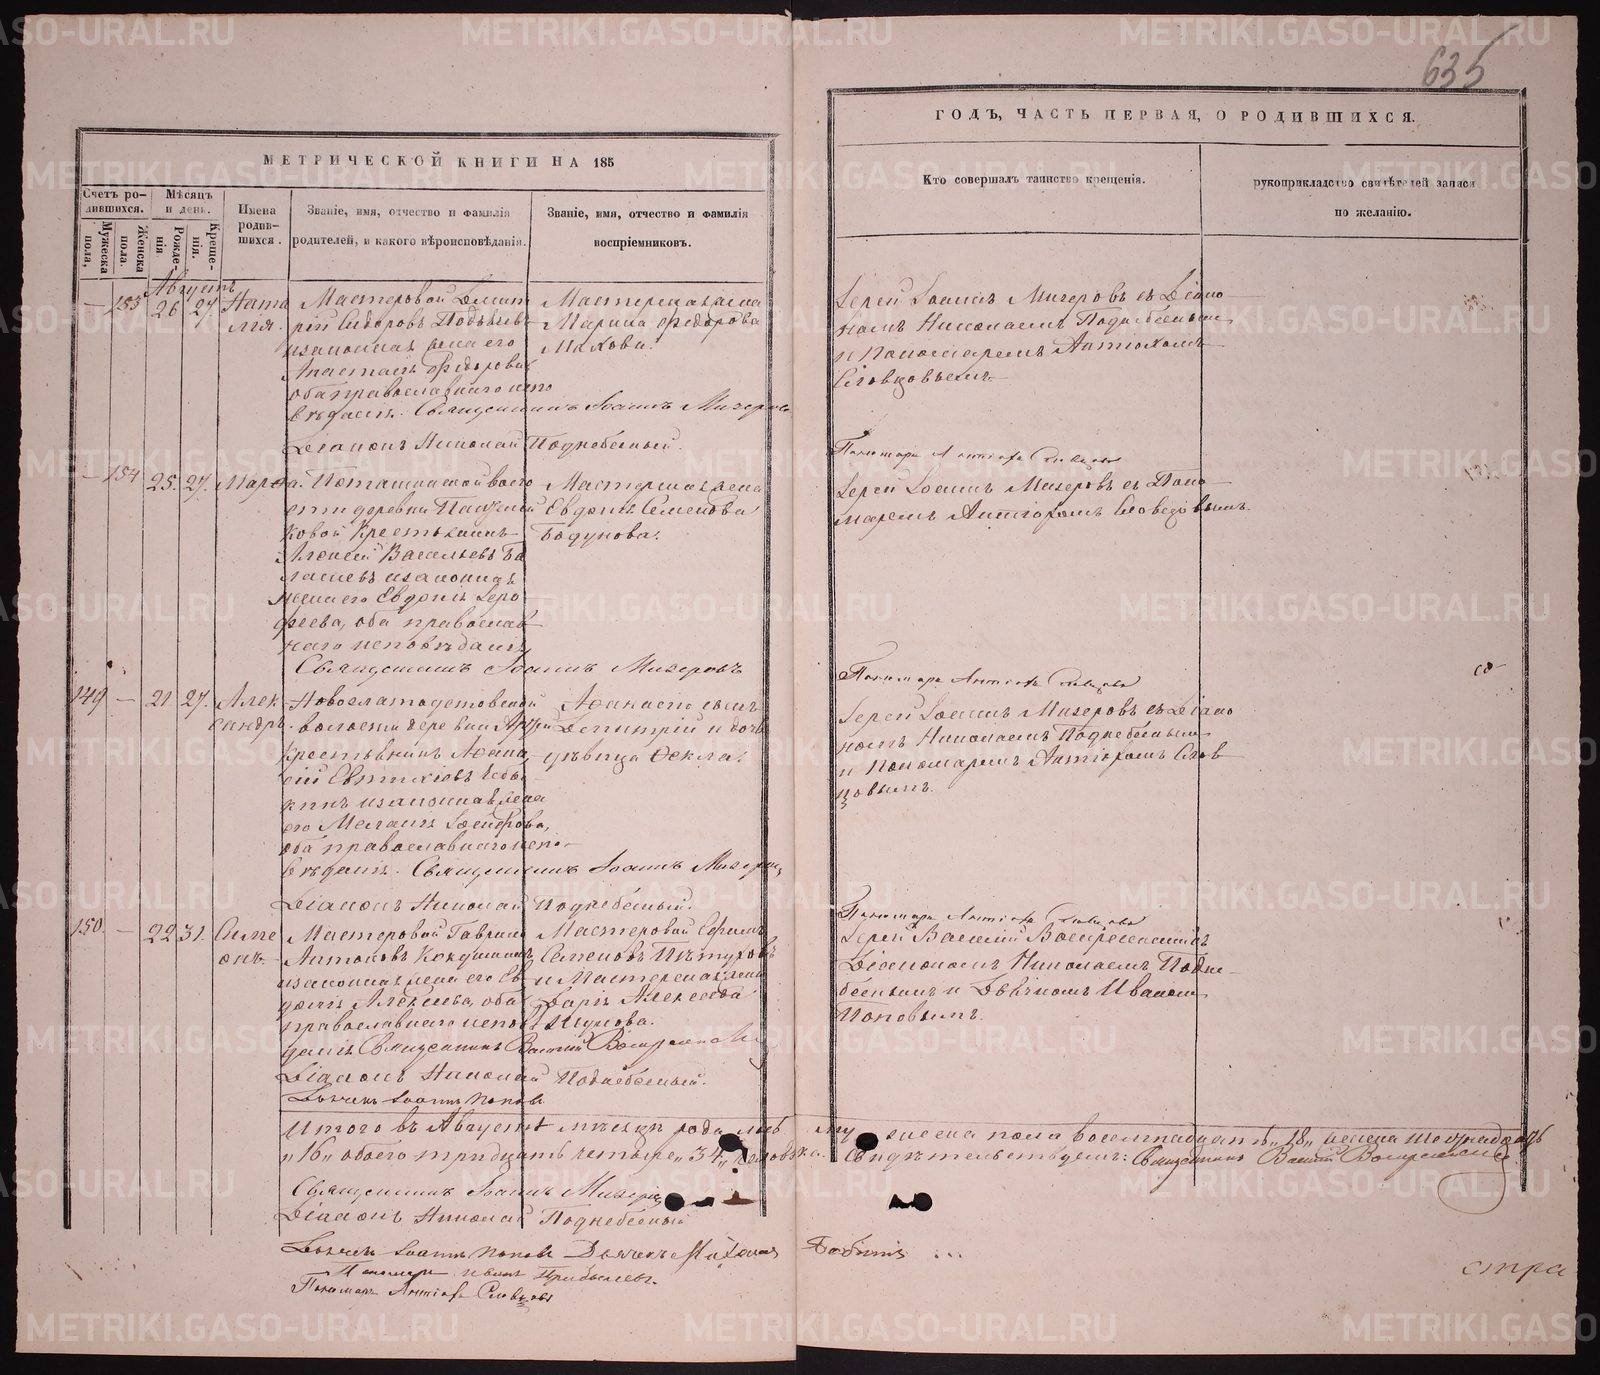 635
МЕТРИЧЕСКОЙ КНИГИ НА 185
ГОДЪ, ЧАСТЬ ПЕРВАЯ, О РОДИВШИХСЯ.
Счетъ ро-
дившихся.
Мужеска
пола,
Женска
пола.
Мѣсяцъ
и день.
Рожде
нія
Креще-
нія.
Имена
родив-
шихся.
Званіе, имя, отчество и фамилія
родителей, и какого вѣроисповѣданія.
Званіе, имя, отчество и фамилія
воспріемниковъ.
Кто совершалъ таинство крещенія.
рукоприкладство свидѣтелей записи
по желанію.
Августъ
— 153 26 27.
Ната
лія.
Мастеровой Димит
рій Сидоровъ
законная жена его
Анастасія Ѳедорова
оба православнаго испо
вѣданія. Священникъ Іоаннъ Мизеровъ
Діаконъ Николай Поднебесный.
Мастерская жена
Марина Ѳедорова
Махова.
Іерей Іоаннъ Мизеровъ съ Діако
номъ Николаемъ Поднебеснымъ
и Пономаремъ Антіохомъ
Словцовымъ.
Пономарь Антіохъ Словцовъ
— 154 25. 27.
Марѳа.
Поташинской воло
сти деревни
ковой Крестьянинъ
Алексей Васильевъ Ба
лашевъ законная
жена его Евдокія Іеро
феева, оба православ
наго исповѣданія
Священникъ Іоаннъ Мизеровъ
Мастерская жена
Евдокія Семенова
Бодунова.
Іерей Іоаннъ Мизеровъ съ Поно
маремъ Антіохомъ Словцовымъ.
Пономарь Антіохъ Словцовъ
149 — 21 27.
Алек
сандръ.
Новозлатоустовской
волости деревни
Крестьянинъ Аѳана
сій Евтихіевъ
кинъ законная жена
его Меланія
оба православнаго испо
вѣданія. Священникъ Іоаннъ Мизеровъ
Діаконъ Николай Поднебесный.
Аѳанасія сынъ
Димитрій и дочь
дѣвица Ѳекла.
Іерей Іоаннъ Мизеровъ съ Діако
номъ Николаемъ Поднебеснымъ
и Пономаремъ Антіохомъ Слов
цовымъ.
Пономарь Антіохъ Словцовъ
150. — 22 31.
Симе
онъ.
Мастеровой Гаврилъ
Антоновъ Кокушкинъ
законная жена его Ев
докія Алексеева, оба
православнаго исповѣ
данія Священникъ Василій Воскресенскій
Діаконъ Николай Поднебесный.
Дьячекъ Іоаннъ Поповъ
Мастеровой Ефимъ
Семеновъ Пѣтуховъ
и Мастерская жена
Дарія Алексеева
Іерей Василій Воскресенскій съ
Діакономъ Николаемъ Подне
беснымъ и Дьячкомъ Иваномъ
Поповымъ.
Итого въ Августѣ мѣсяцѣ родилось мужеска пола восемнадцать „18„ женска шестнадцать
„16„ обоего тридцать четыре „34„ человѣка. Свидѣтельствуемъ: Священникъ Василій Воскресенскій
Священникъ Іоаннъ Мизеровъ
Діаконъ Николай Поднебесный
Дьячекъ Іоаннъ Поповъ Дьячекъ
Пономарь Иванъ Прибылевъ.
Пономарь Антіохъ Словцовъ
стра
METRIKI.GASO-URAL.RU